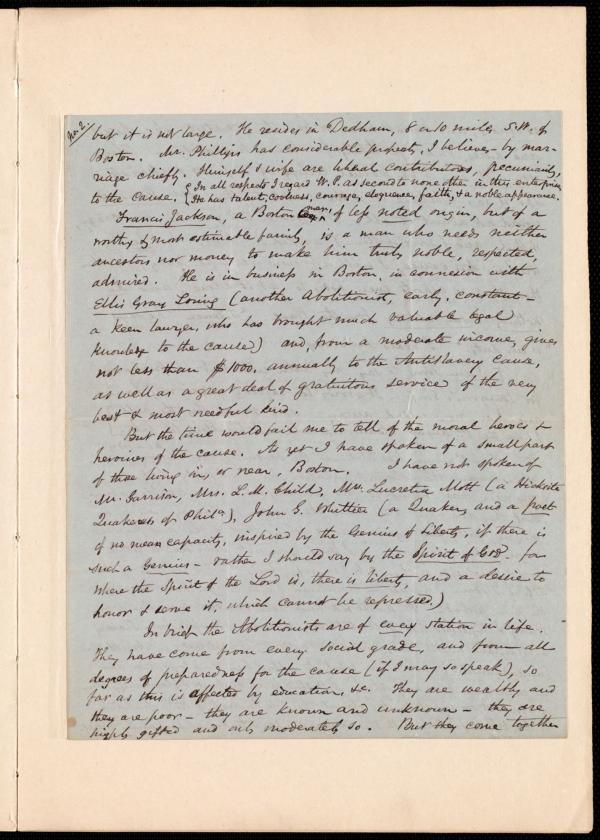 No. 2/
but it is not large. He resides in Dedham, 8 or 10 miles S.W. of
Boston. Mr. Phillips has considerable property, I believe - by mar-
riage chiefly. Himself & wife are liberal contributors, pecuniarily,
to the cause. {In all respects I regard W. P. as second to none other in this enterprise.
{He has talent, coolness, courage, eloquence, faith, & a noble appearance.
Francis Jackson, a Boston man, of less noted origin, but of a
worthy & most estimable family, is a man who needs neither
ancestors nor money to make him truly noble, respected,
admired. He is in business in Boston, in connexion with
Ellis Gray Loring (another Abolitionist, early, constant -
a keen lawyer, who has brought much valuable legal
knowledge to the cause) and, from a moderate income, gives
not less than $1000. annually to the Antislavery Cause,
as well as a great deal of gratuitous service of the very
best & most needful kind.
But the time would fail me to tell of the moral heroes &
heroines of the cause. As yet I have spoken of a small part
of those living in, or near, Boston. I have not spoken of
Mr. Garrison, Mrs. L. M. Child, Mrs. Lucretia Mott (a Hicksite
Quakeress of Phila), John G. Whittier (a Quaker, and a poet
of no mean capacity, inspired by the Genius of Liberty, if there is
such a Genius - rather I should say by the Spirit of God. for
where the Spirit of the Lord is, there is liberty, and a desire to
honor & serve it, which cannot be repressed.)
In brief the Abolitionists are of every station in life.
They have come from every social grade, and from all
degrees of preparedness for the cause (if I may so speak), so
far as this is affected by education, &c. They are wealthy and
they are poor - they are known and unknown - they are
highly gifted and only moderately so. But they come together